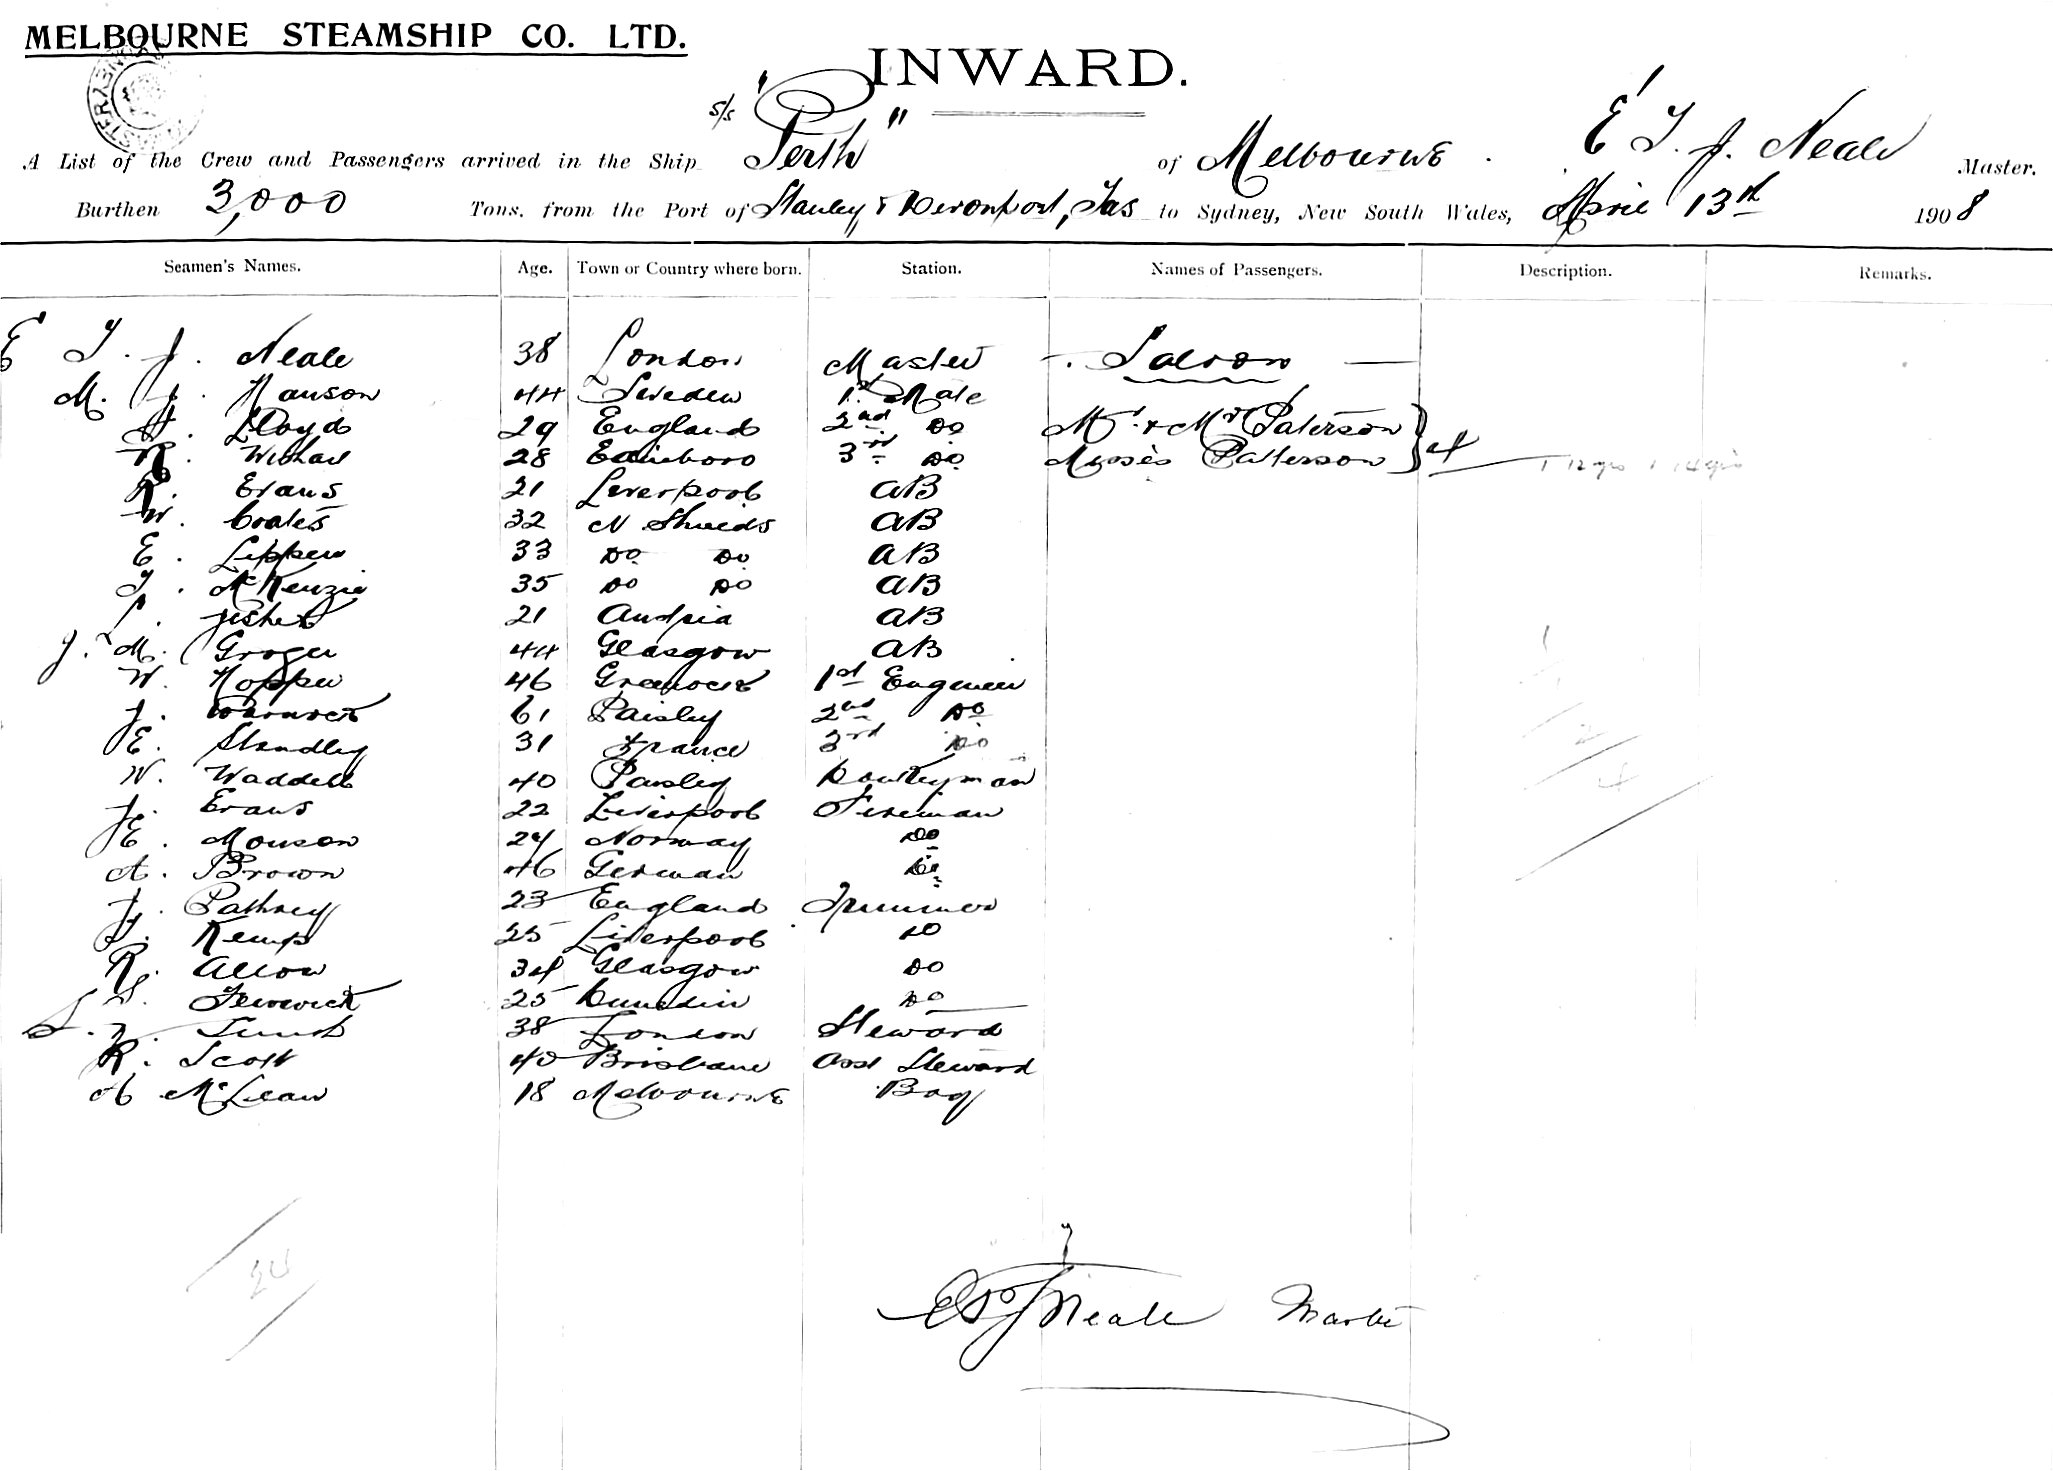 MELBOURNE STEAMSHIP CO. LTD.
INWARD.
A List of the Crew and Passengers arrived in the Ship s/s "Perth" of Melbourne. E T. J. Neale Master.
Burthen 3,000 Tons. from the Port of Stanley & Devonport, Tas to Sydney, New South Wales, April 13th 1908
Seamen's Names. Age. Town or Country where born. Station. Names of Passengers. Description. Remarks.
E T. J. Neale 38 London Master Saloon
M. J. Hanson 44 Sweden 1st Mate
H. Lloyd 29 England 2nd Do Mr & Mrs Paterson
28 Edinboro 3rd Do Misses Patterson 4
R. Evans 21 Liverpool AB
W. Coates 32 N Shields AB
E. 33 Do Do AB
T. McKenzie 35 Do Do AB
Fisher 21 AB
J. M. 44 Glasgow AB
W. Hopper 46 Greenock 1st Engineer
J. Warnock 61 Paisley 2nd Do
E. Standley 31 France 3rd Do
W. Waddell 40 Paisley Donkeyman
J. Evans 22 Liverpool Fireman
E. Monson 24 Norway Do
A. Brown 46 German Do
J. 23 England Trimmer
J. Kemp 25 Liverpool Do
R. 34 Glasgow Do
25 Dunedin Do
38 London Steward
R. Scott 40 Brisbane Asst Steward
A McLean 18 Melbourne Boy
24
Neale Master